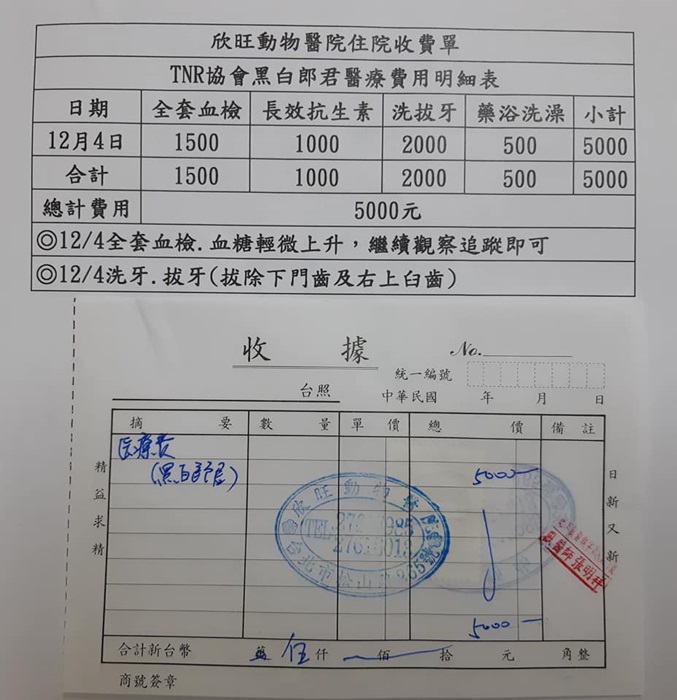 欣旺動物醫院住院收費單
TNR協會黑白郎君醫療費用明細表
日期 全套血檢 長效抗生素 洗拔牙 藥浴洗澡 小計
12月4日 1500 1000 2000 500 5000
合計 1500 1000 2000 500 5000
總計費用 5000元
◎12/4全套血檢.血糖輕微上升，繼續觀察追蹤即可
◎12/4洗牙.拔牙(拔除下門齒及右上臼齒)
收據 No.
統一編號
台照 中華民國 年 月 日
摘要 數量 單價 總價 備註
医療費 5000
(黑白郎君)
精益求精
日新又新
欣旺動物醫院
TEL
台北市松山
獸醫師張明
5000
合計新台幣 萬伍仟 佰 拾 元 角整
商號簽章